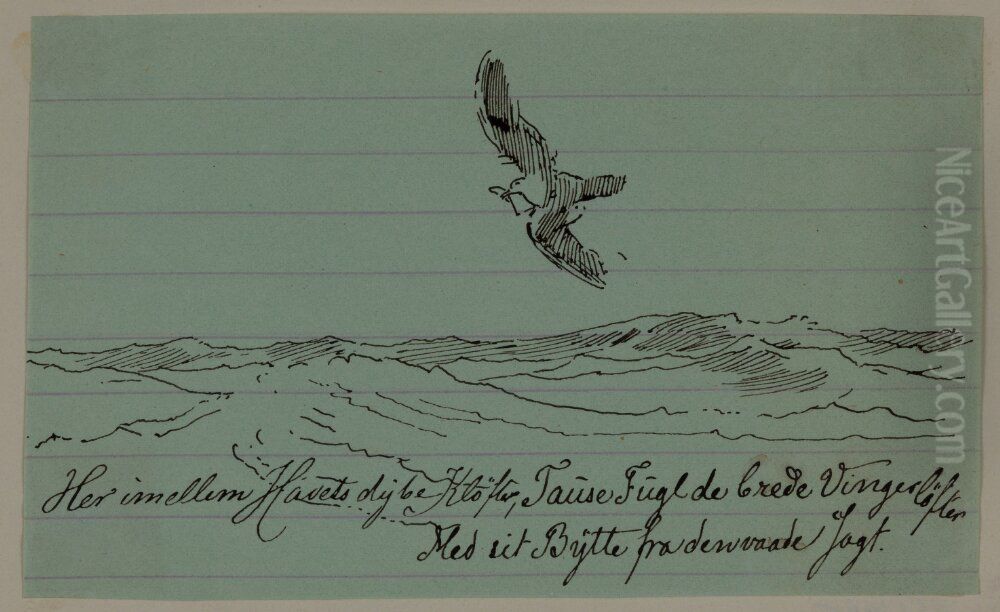 Her imellem Havets dybe Kløfter, Tause Fugl de brede Vinger løfter
Med sit Bytte fra den vaade Jagt.
NiceArtGallery.com